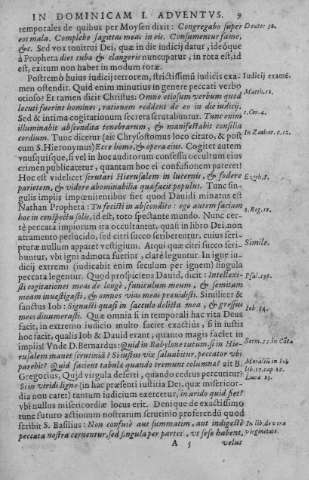 IN DOMINICAM I. ADVENTVS. 9
temporales de quibus per Moysen dixit: Congregabo super Deuter 32.
eos mala. Complebo sagittas meas in eis. Consumentur fame,
&c. Sed vox tonitrui Dei, quæ in die iudicij datur, ideóque
à Propheta dies tuba & clangoris nuncupatur, in rota est, id
est, exitum non habet in modum rotæ.
Postremò huius iudicij terrorem, strictissimũ iudicis exa- Iudicij exami.
men ostendit. Quid enim minutius in genere peccati verbo
otioso? Et tamen dicit Christus: Omne otiosum verbum quod Matth. 12.
locuti fuerint homines, rationem reddent de eo in die iudicij.
Sed & intima cogitationum secreta scrutabuntur. Tunc enim 1. Cor. 4.
illuminabit abscondita tenebrarum, & manifestabit consilia
cordium. Tunc dicetur (aït Chrysostomus loco citato, & post
eum S. Hieronymus) Ecce homo, & opera eius. Cogitet autem
vnusquisque, si vel in hoc auditorum consessu occultum eius
crimen publicaretur, quantum hoc ei confusionem pareret?
Hoc est videlicet scrutari Hierusalem in lucernis, & fodere
parietem, & videre abominabilia quæ facit populus. Tunc sin- Ezech. 8.
gulis impijs impœnitentibus fiet quod Dauidi minatus est
Nathan Propheta: Tu fecisti in abscondito: ego autem faciam
hoc in conspectu solis, id est, toto spectante mundo. Nunc cer- 2. Reg. 12.
tè peccata impiorum ita occultantur, quasi in libro Dei non
atramento perlucido, sed citri succo scriberentur, cuius scri-
pturæ nullum apparet vestigium. Atqui quæ citri succo scri- Simile.
buntur, vbi igni admota fuerint, clarè leguntur. In igne iu-
dicij extremi (iudicabit enim seculum per ignem) singula
peccata legentur. Quod prospiciens Dauid, dicit: Intellexi-
sti cogitationes meas de longè, funiculum meum, & semitam Psal. 138.
meam inuestigasti, & omnes vias meas preuidisti. Similiter &
sanctus Iob: Signasti quasi in sacculo delicta mea, & gressus Iob. 14.
meos dinumerasti. Quæ omnia si in temporali hac vita Deus
facit, in extremo iudicio multo faciet exactius, si in iustis
hoc facit, qualis Iob & Dauid erant, quanto magis faciet in
impijs? Vnde D. Bernardus: Quid in Babylone tutum, si in Hie-
rusalem manet scrutiniũ? Si iustus vix saluabitur, peccator vbi
parebit? Quid facient tabulæ quando tremunt columnæ? aït B.
Gregorius. Quid virgula deserti, quando cedrus percutitur?
Si in viridi ligno (in hac præsenti iustitia Dei, quæ misericor- Lucæ 23.
dia non caret) tantum iudicium exercetur, in arido quid fiet?
vbi nullus misericordiæ locus erit. Denique de exactissimo
tunc futuro actionum nostrarum scrutinio proferendũ quod
scribit S. Basilius: Non confusè aut summatim, aut indigestè In lib. de vera
peccata nostra cernentur, sed singula per partes, vt sese habent, virginitate.
A 5 velus